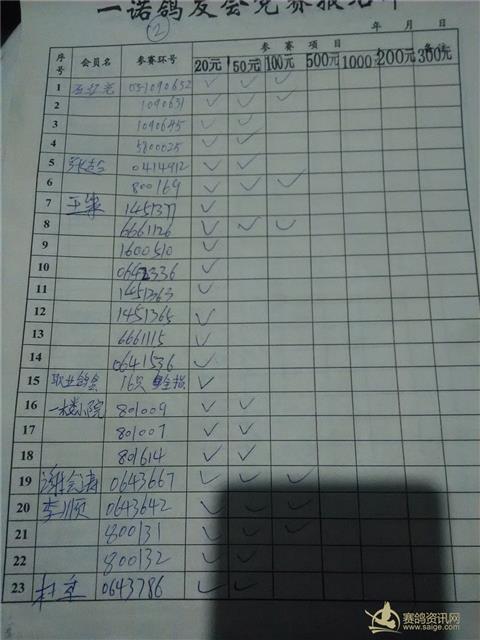 一诺鸽友会竞赛报名单
②
年 月 日
序号 会员名 参赛环号 参 赛 项 目 备注
20元 50元 100元 500元 1000元 200元 300元
1 031090652 ✓ ✓ ✓
2 1090631 ✓ ✓ ✓
3 1090645 ✓ ✓
4 5800025 ✓ ✓
5 0414912 ✓ ✓
6 800169 ✓ ✓ ✓
7 王 1451377 ✓
8 6661126 ✓ ✓ ✓
9 1600510 ✓
10 0642336 ✓
11 1451363 ✓
12 1451365 ✓
13 6661115 ✓
14 0641536 ✓
15 职业鸽会 16只 全指 ✓
16 一楼小院 801009 ✓ ✓
17 801007 ✓ ✓
18 801614 ✓ ✓
19 谢 0643667 ✓ ✓ ✓
20 李顺 0643642 ✓ ✓ ✓
21 800131 ✓ ✓ ✓
22 800132 ✓ ✓
23 杜 0643786 ✓ ✓
赛鸽资讯网
www.saige.com